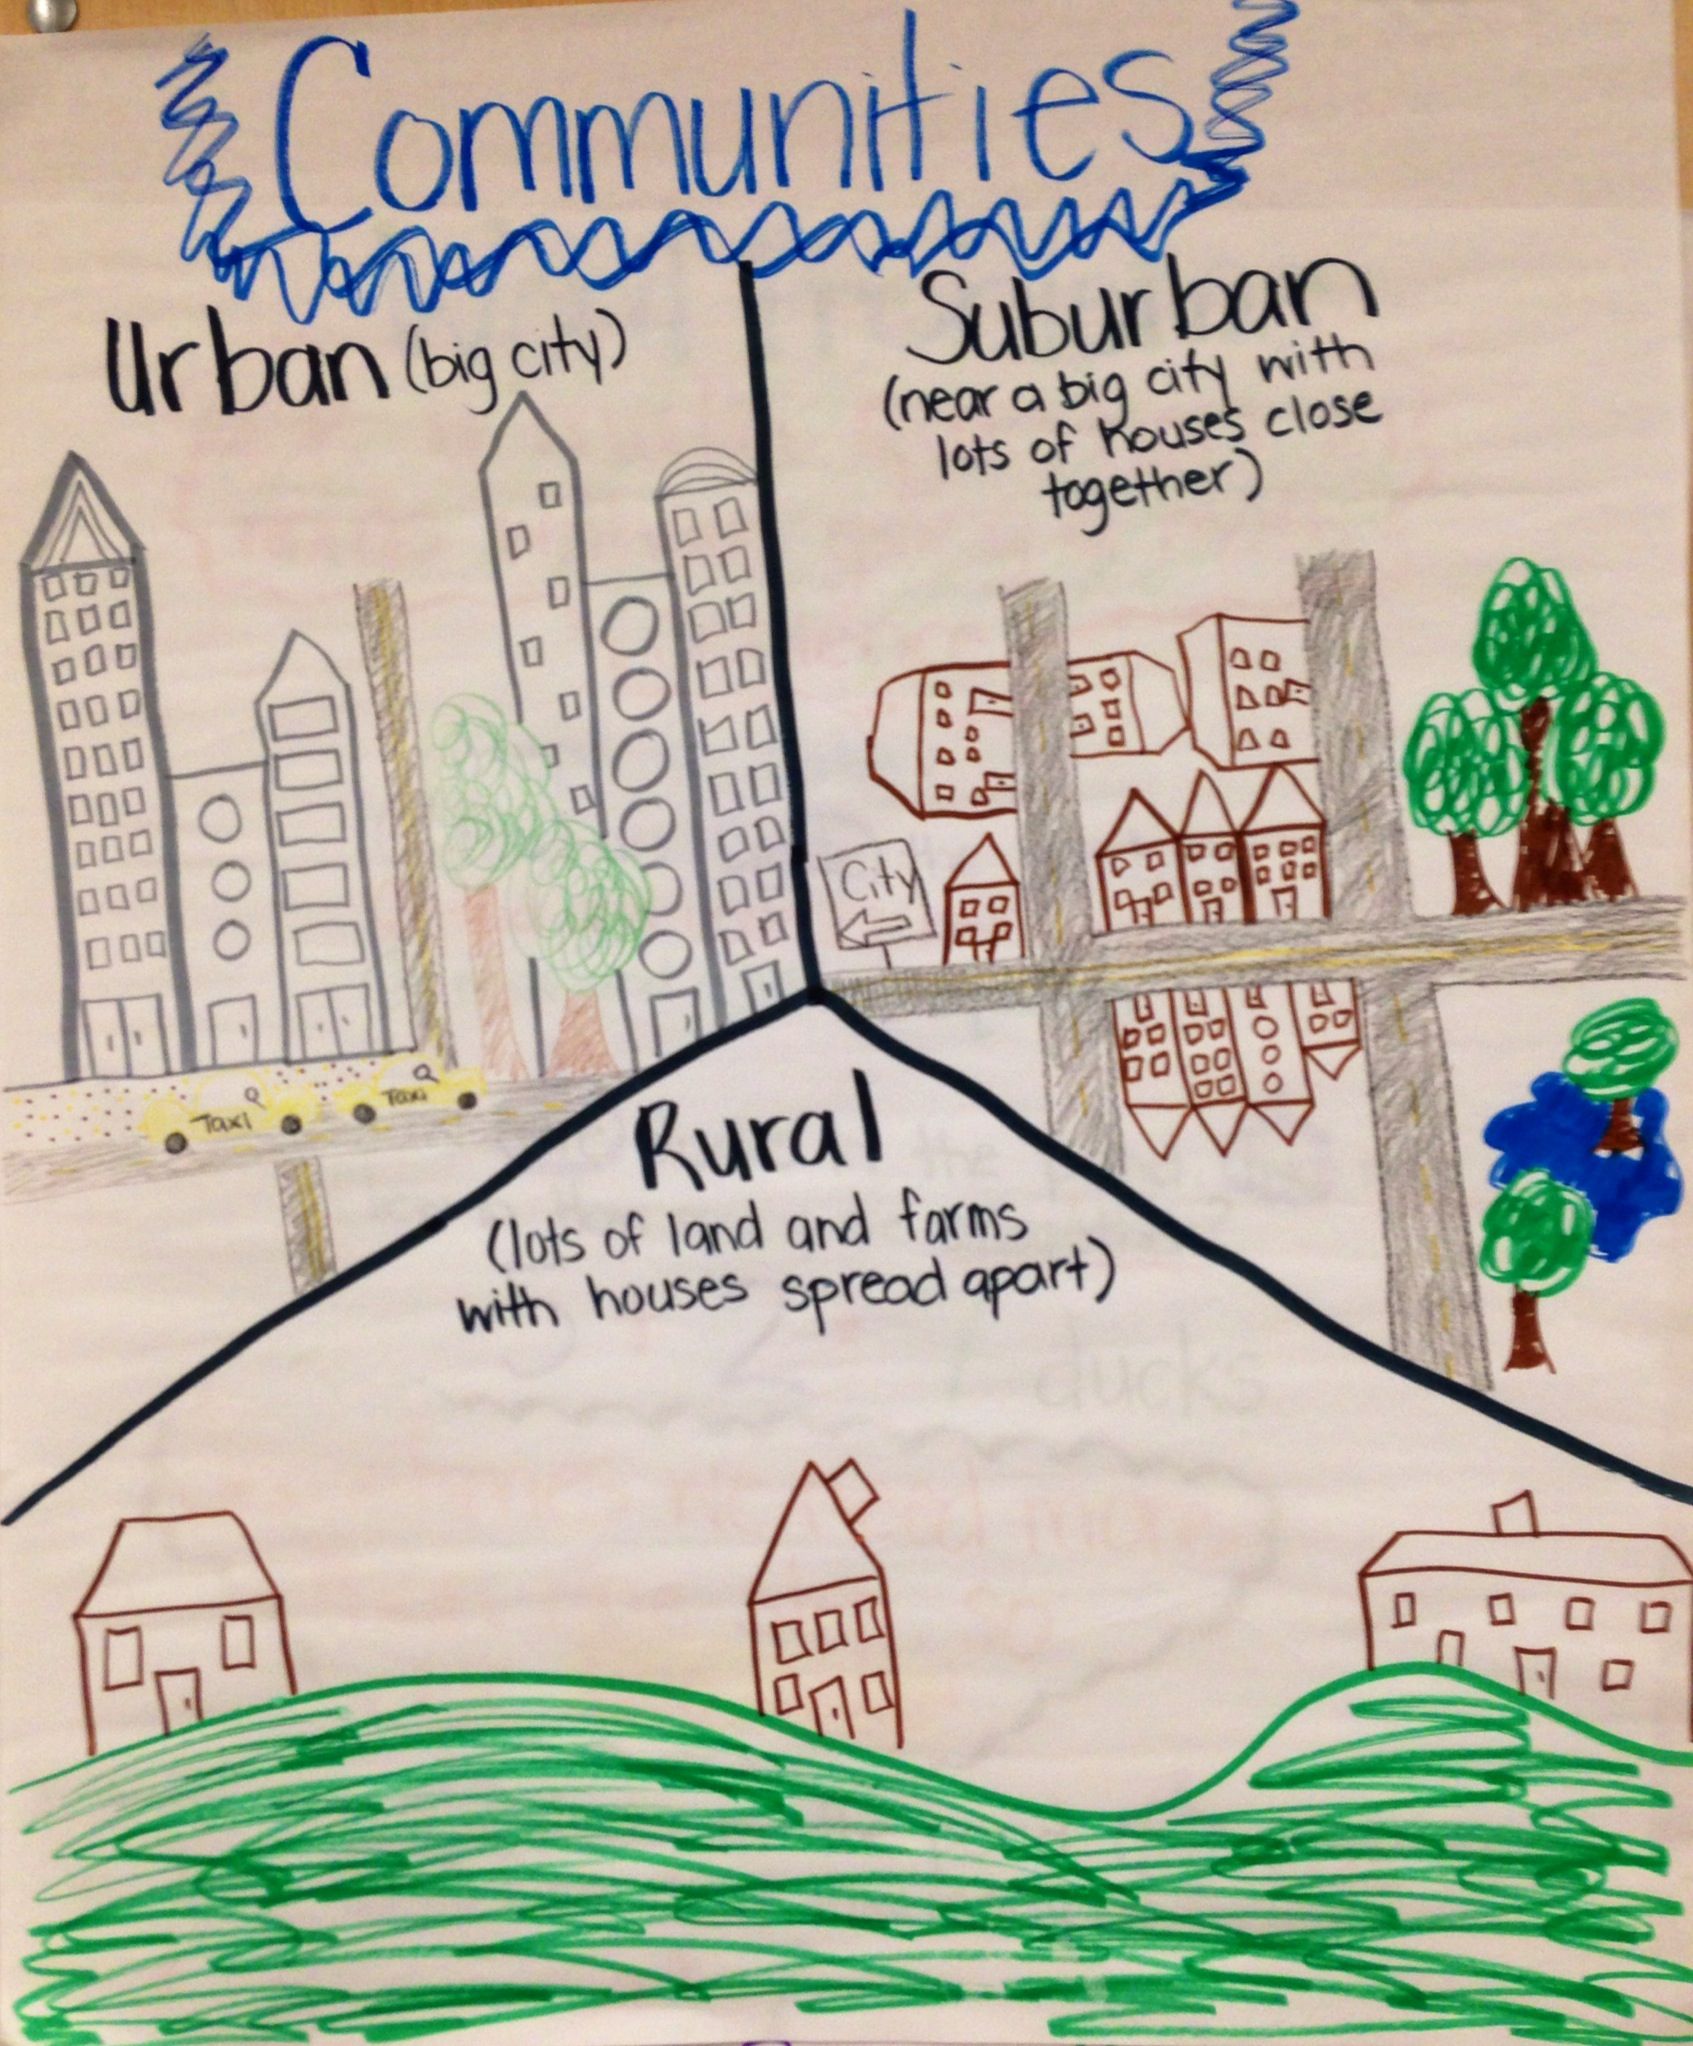 Communities
Urban (big city)
Suburban
(near a big city with
lots of houses close
together)
City
Taxi
Taxi
Rural
(lots of land and farms
with houses spread apart)
ducks